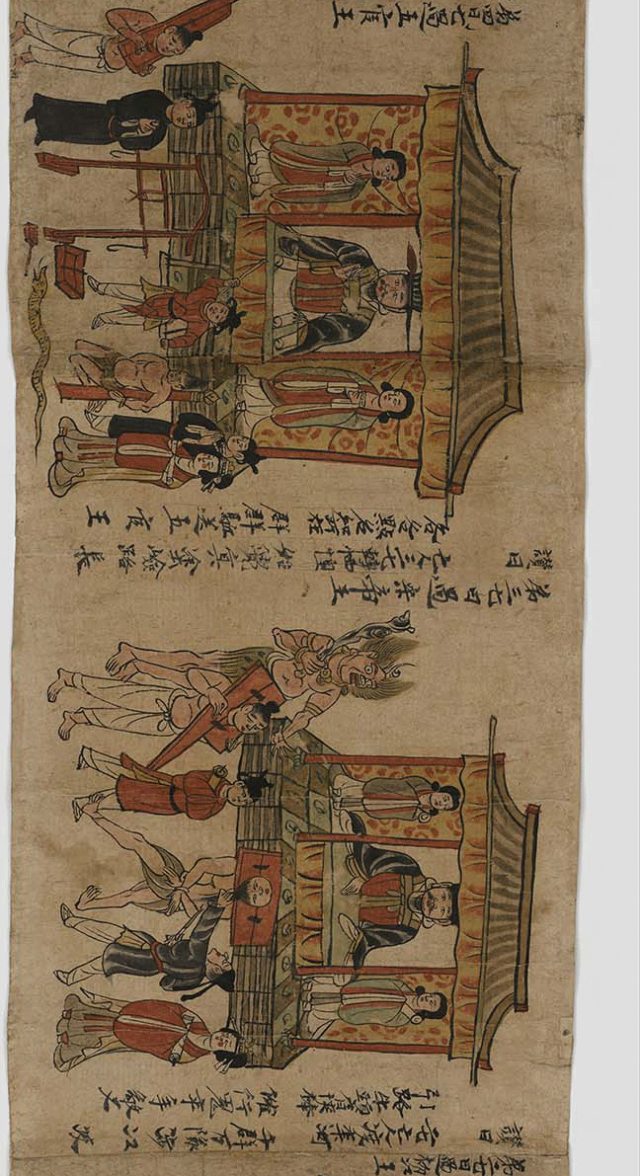 第二七日過初江王
讚曰 二七亡人渡柰河 千群万隊涉江波
引路牛頭肩俠棒 催行鬼卒手擎叉
第三七日過宋帝王
讚曰 亡人三七轉恓惶 始覺冥塗嶮路長
各各點名知所在 群群駈送五官王
第四七日過五官王